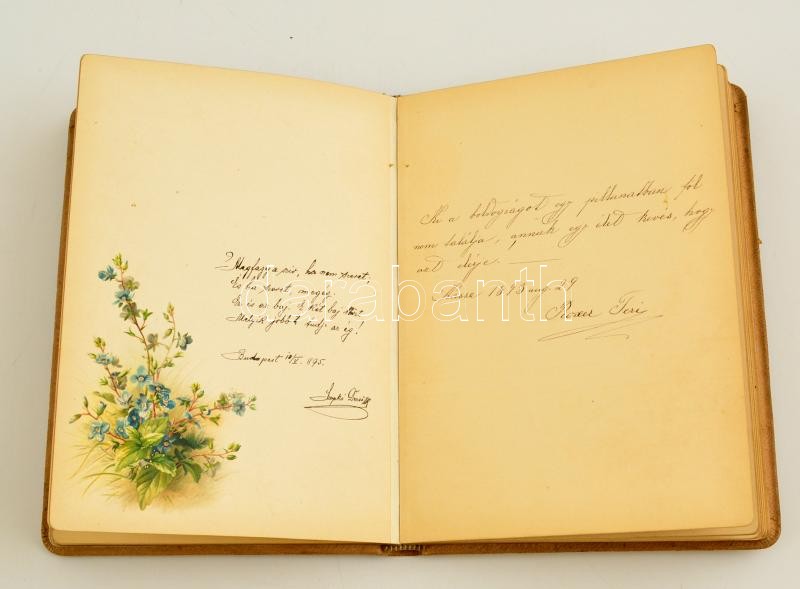 Megfagy a szív, ha nem szeret,
És ha szeret, megég.
Ez is az baj. E két baj közt
Melyik jobb? tudja az ég!
Budapest 10/V. 1895.
Ki a boldogságot egy pillanatban föl
nem találja, annak egy élet kevés, hogy
azt elérje. —
1895 aug 29
Teri
darabanth